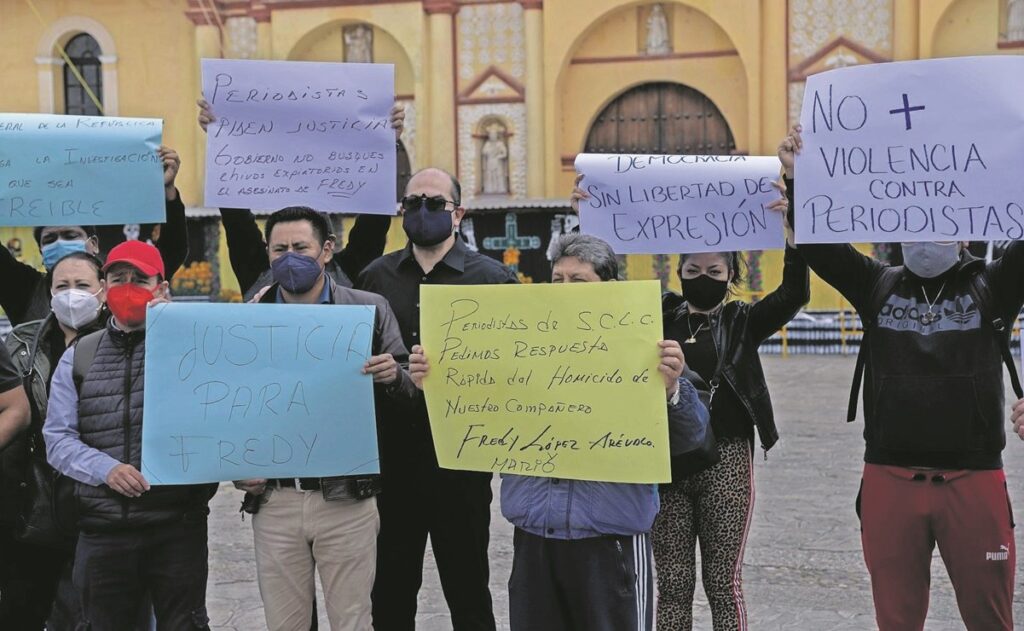 ERAL DE LA REPUBLICA
GA LA INVESTIGACIÓN
QUE SEA
REIBLE
PERIODISTAS
PIDEN JUSTICIA
GOBIERNO NO BUSQUES
CHIVOS EXPIATORIOS EN
EL ASESINATO DE FREDY
DEMOCRACIA
SIN LIBERTAD DE
EXPRESIÓN
NO +
VIOLENCIA
CONTRA
PERIODISTAS
JUSTICIA
PARA
FREDY
Periodistas de S.C.L.C.
Pedimos Respuesta
Rápida del Homicidio de
Nuestro Compañero
Fredy López Arévalo.
MARIO
adidas
ORIGINAL
PUMA